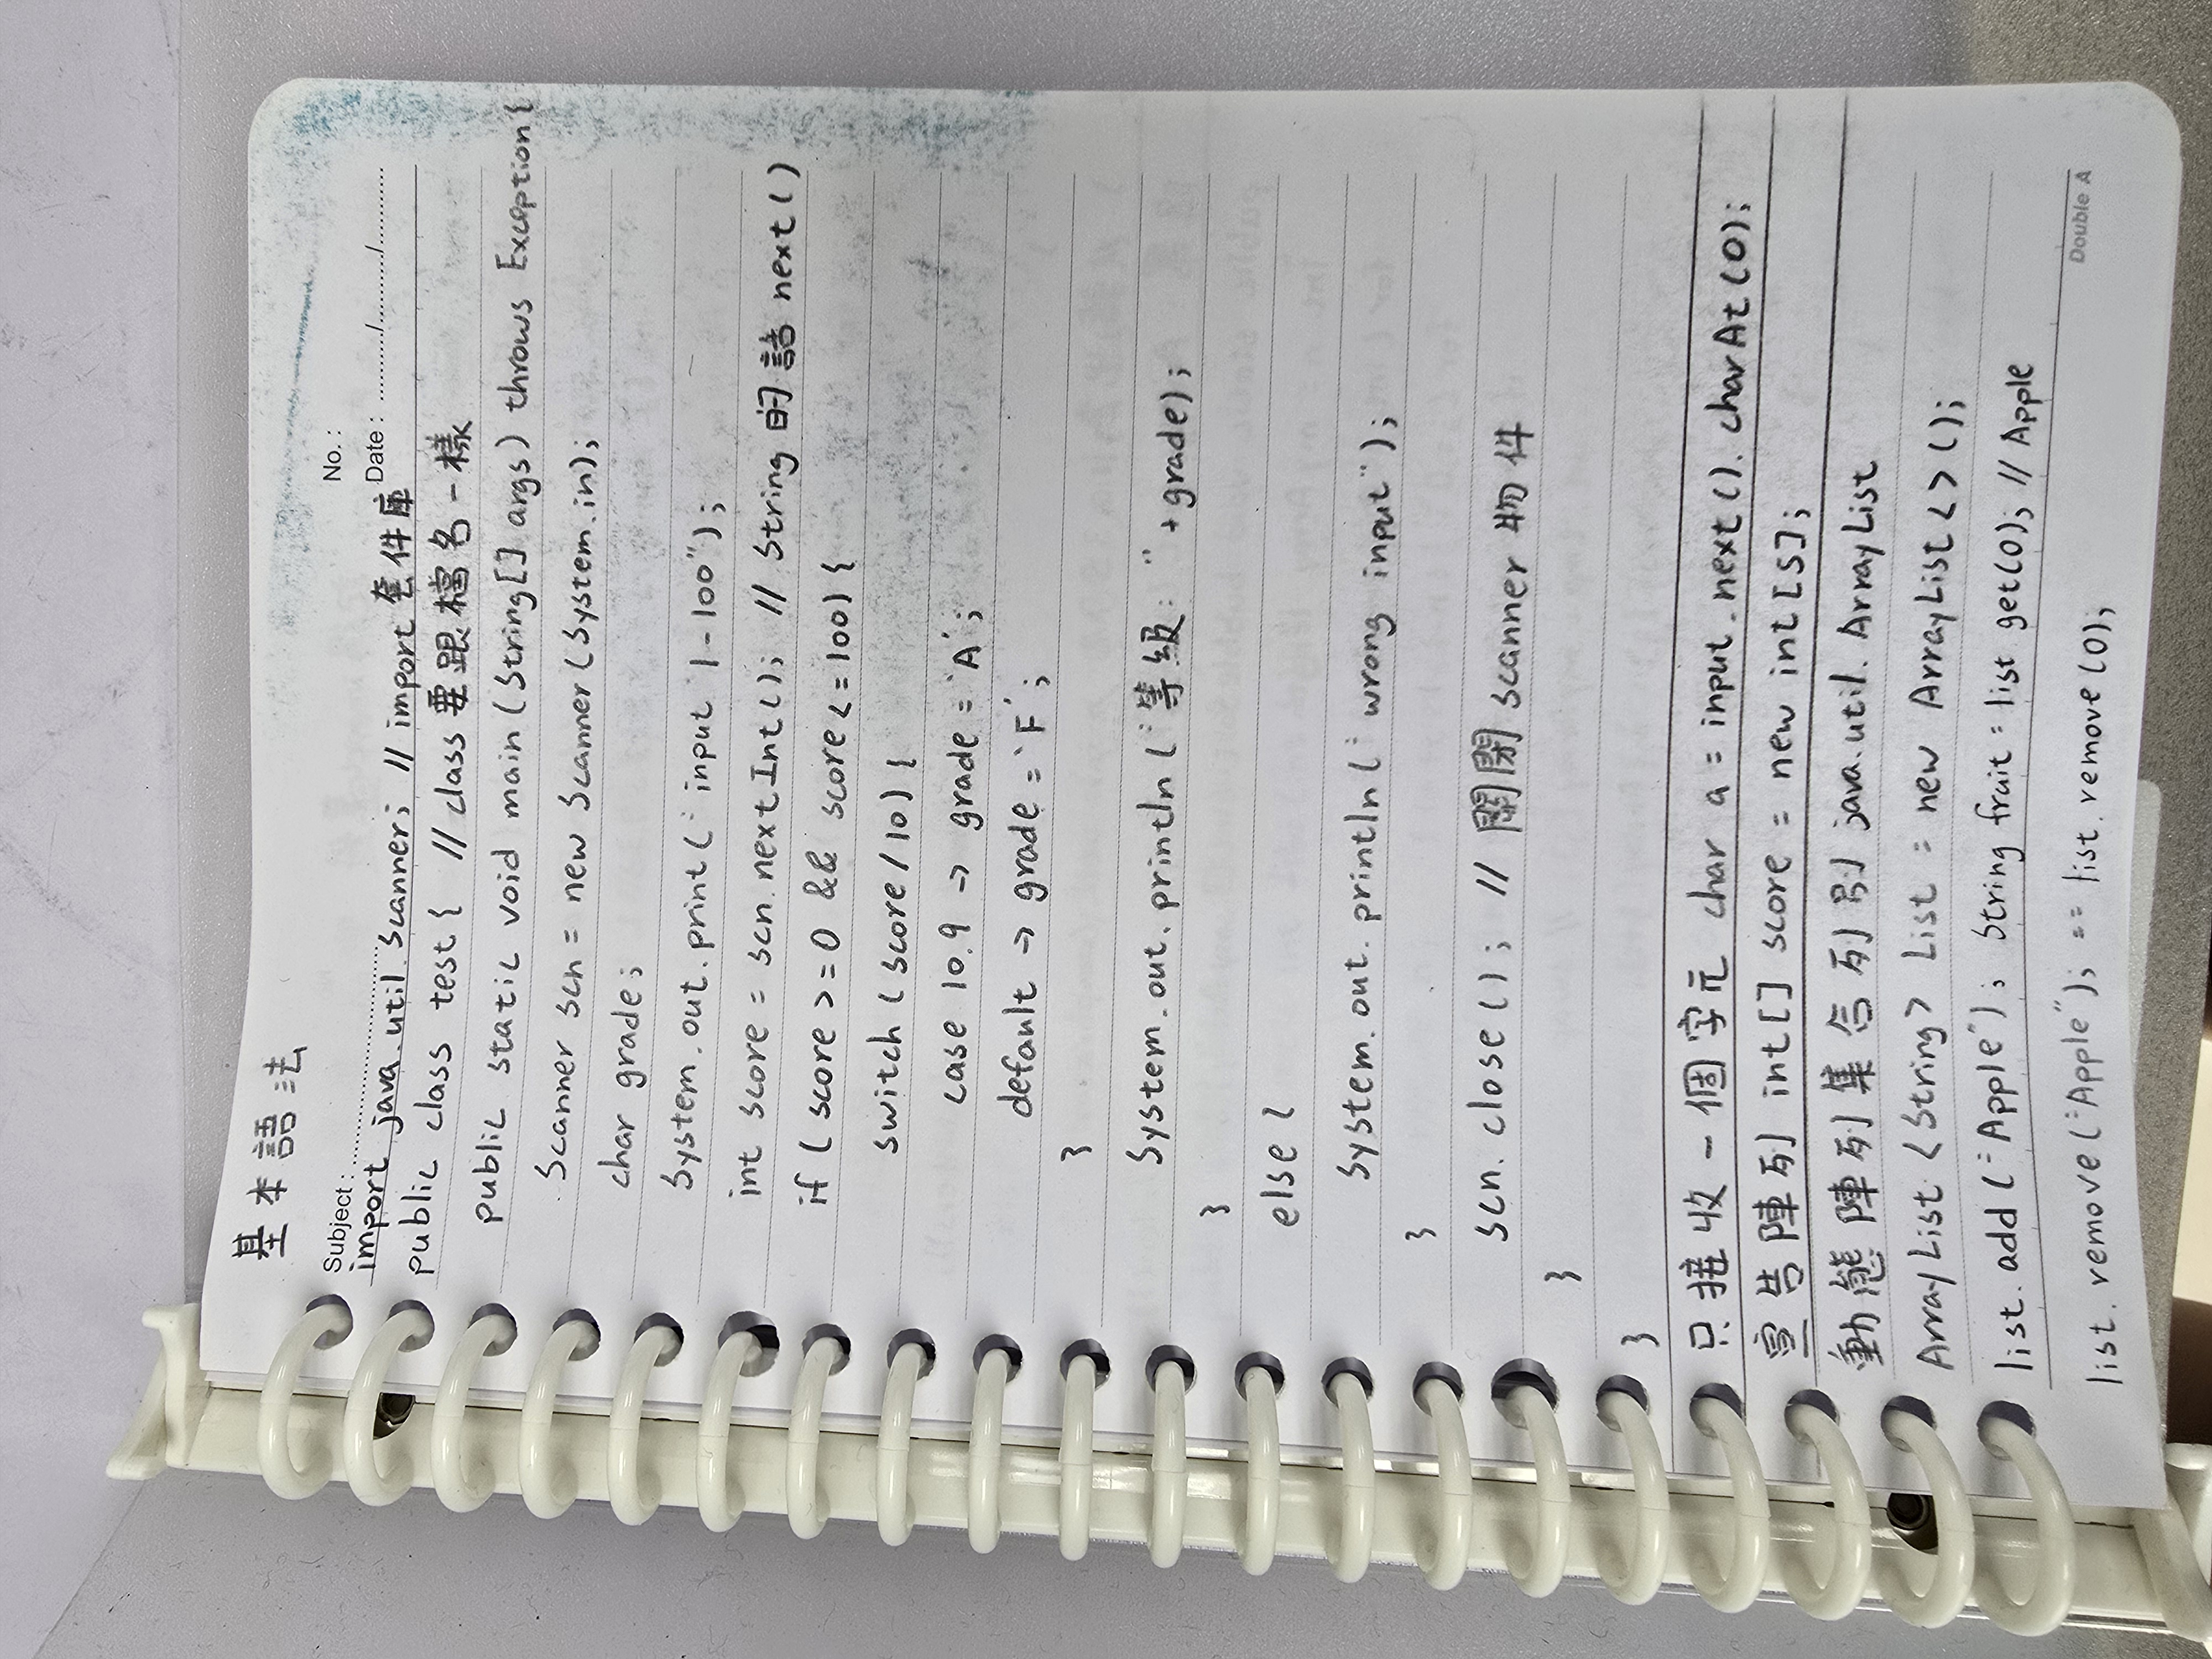 基本語法
Subject: No.:
Date: / /
import java.util.Scanner; // import 套件庫
public class test{ // class 要跟檔名一樣
public static void main (String[] args) throws Exception{
Scanner scn = new Scanner(System.in);
char grade;
System.out.print("input 1-100");
int score = scn.nextInt(); // String的話 next()
if (score >= 0 && score <= 100) {
switch (score/10) {
case 10,9 -> grade = 'A';
default -> grade = 'F';
}
System.out.println("等級: " + grade);
}
else {
System.out.println("wrong input");
}
scn.close(); // 關閉 scanner 物件
}
}
只接收一個字元 char a = input.next().charAt(0);
宣告陣列 int[] score = new int[5];
動態陣列集合列別 java.util.ArrayList
ArrayList <String> List = new ArrayList<>();
list.add("Apple"); String fruit = list get(0); // Apple
list.remove("Apple"); == list.remove(0);
Double A